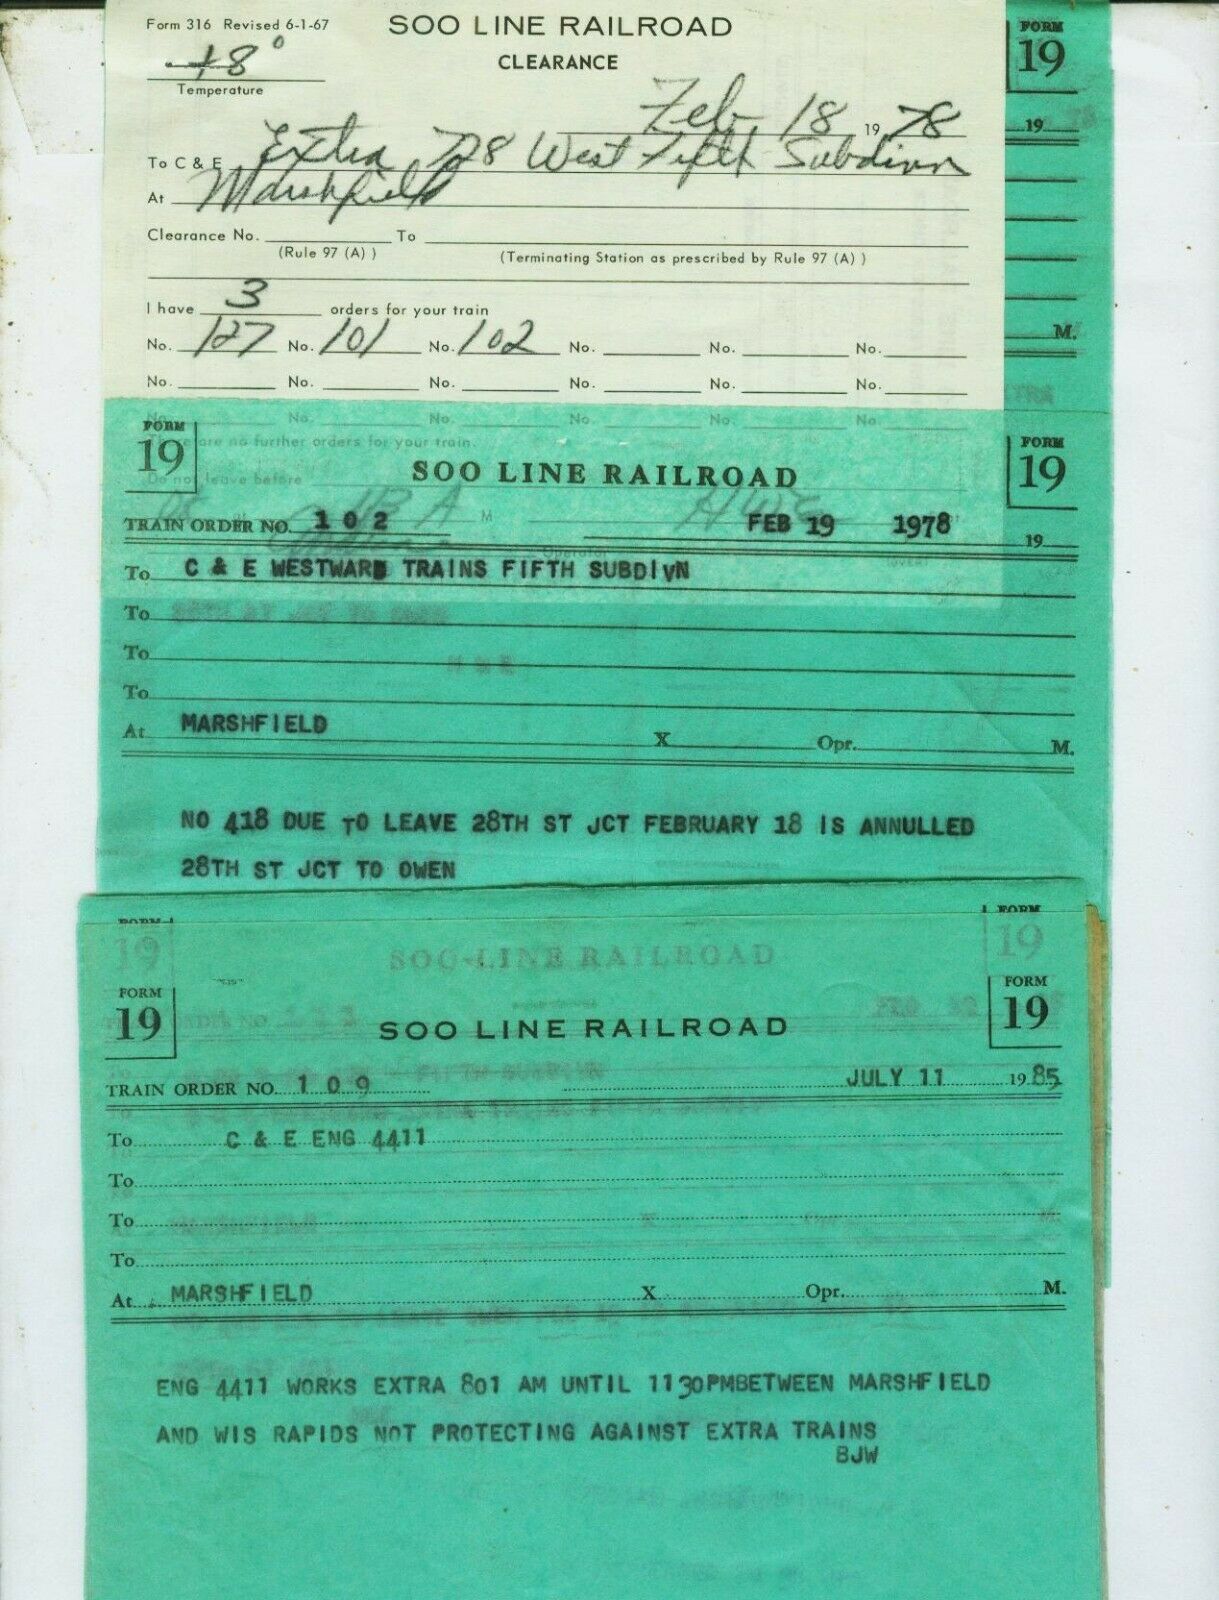 Form 316 Revised 6-1-67
SOO LINE RAILROAD
CLEARANCE
+8°
Temperature
Feb 18 19 78
To C & E Extra 728 West Fifth Subdivn
At Marshfield
Clearance No. To
(Rule 97 (A) ) (Terminating Station as prescribed by Rule 97 (A) )
I have 3 orders for your train
No. 127 No. 101 No. 102 No. No. No.
No. No. No. No. No. No.
No. No. No. No. No. No.
are no further orders for your train.
Do not leave before
M
Operator
FORM
19
19 78
M.
FORM
19
SOO LINE RAILROAD
FORM
19
TRAIN ORDER NO. 102 FEB 19 1978 19
To C & E WESTWARD TRAINS FIFTH SUBDIVN
To
To
To
At MARSHFIELD X Opr. M.
NO 418 DUE TO LEAVE 28TH ST JCT FEBRUARY 18 IS ANNULLED
28TH ST JCT TO OWEN
FORM
19
SOO LINE RAILROAD
FORM
19
FORM
19
SOO LINE RAILROAD
FORM
19
TRAIN ORDER NO. 109 JULY 11 1985
To C & E ENG 4411
To
To
To
At MARSHFIELD X Opr. M.
ENG 4411 WORKS EXTRA 801 AM UNTIL 1130PMBETWEEN MARSHFIELD
AND WIS RAPIDS NOT PROTECTING AGAINST EXTRA TRAINS
BJW